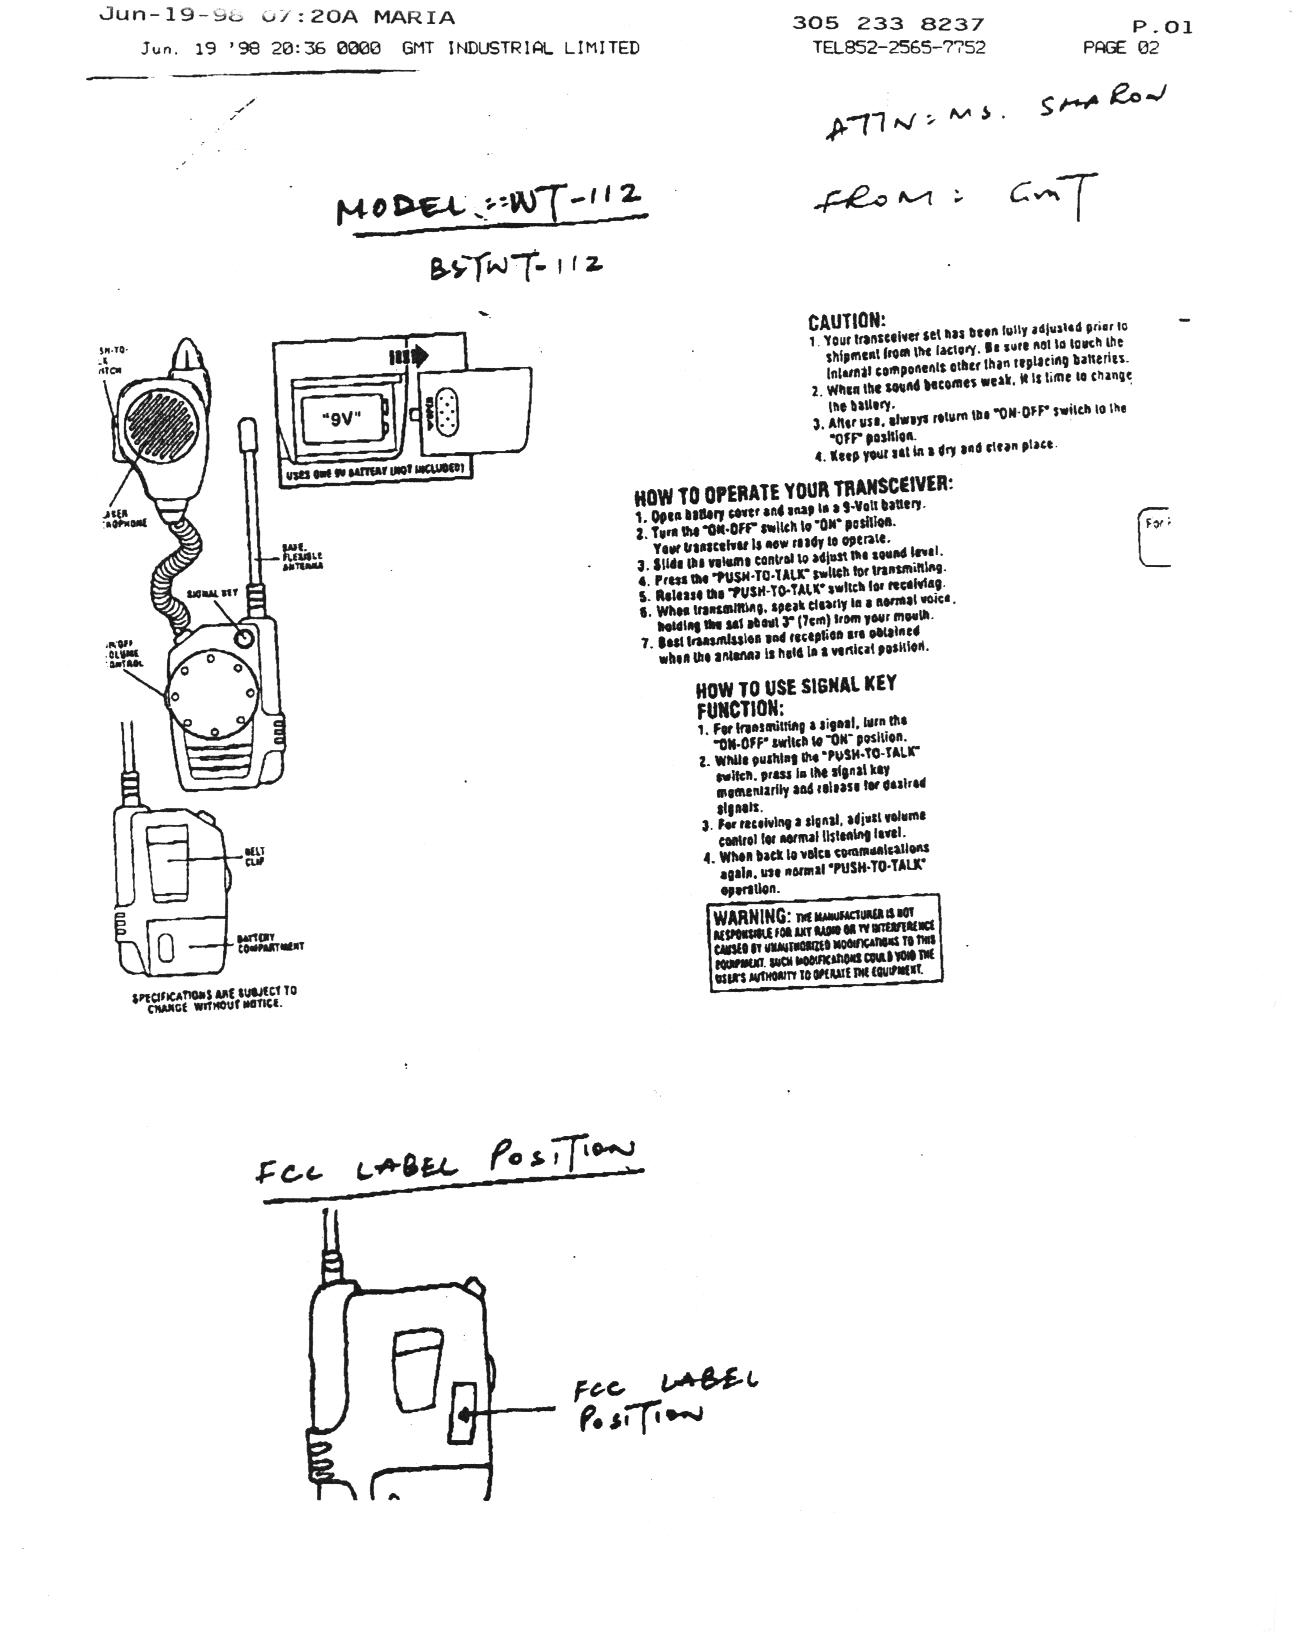 Jun-19-98 07:20A MARIA 305 233 8237 P.01
Jun. 19 '98 20:36 0000 GMT INDUSTRIAL LIMITED TEL852-2565-7752 PAGE 02
ATTN: MS. SHARON
FROM: GMT
MODEL :: WT-112
BSTWT-112
SH-TO-
LK
ITCH
"9V"
OPEN
USES ONE 9V BATTERY (NOT INCLUDED)
AKER
ROPHONE
SAFE,
FLEXIBLE
ANTENNA
SIGNAL KEY
N/OFF
OLUME
ONTROL
BELT
CLIP
BATTERY
COMPARTMENT
SPECIFICATIONS ARE SUBJECT TO
CHANGE WITHOUT NOTICE.
CAUTION:
1. Your transceiver set has been fully adjusted prior to
shipment from the factory. Be sure not to touch the
Internal components other than replacing batteries.
2. When the sound becomes weak, it is time to change
the battery.
3. After use, always return the "ON-OFF" switch to the
"OFF" position.
4. Keep your set in a dry and clean place.
HOW TO OPERATE YOUR TRANSCEIVER:
1. Open battery cover and snap in a 9-Volt battery.
2. Turn the "ON-OFF" switch to "ON" position.
Your transceiver is now ready to operate.
3. Slide the volume control to adjust the sound level.
4. Press the "PUSH-TO-TALK" switch for transmitting.
5. Release the "PUSH-TO-TALK" switch for receiving.
6. When transmitting, speak clearly in a normal voice,
holding the set about 3" (7cm) from your mouth.
7. Best transmission and reception are obtained
when the antenna is held in a vertical position.
For
HOW TO USE SIGNAL KEY
FUNCTION:
1. For transmitting a signal, turn the
"ON-OFF" switch to "ON" position.
2. While pushing the "PUSH-TO-TALK"
switch, press in the signal key
momentarily and release for desired
signals.
3. For receiving a signal, adjust volume
control for normal listening level.
4. When back to voice communications
again, use normal "PUSH-TO-TALK"
operation.
WARNING: THE MANUFACTURER IS NOT
RESPONSIBLE FOR ANY RADIO OR TV INTERFERENCE
CAUSED BY UNAUTHORIZED MODIFICATIONS TO THIS
EQUIPMENT. SUCH MODIFICATIONS COULD VOID THE
USER'S AUTHORITY TO OPERATE THE EQUIPMENT.
FCC LABEL POSITION
FCC LABEL
POSITION